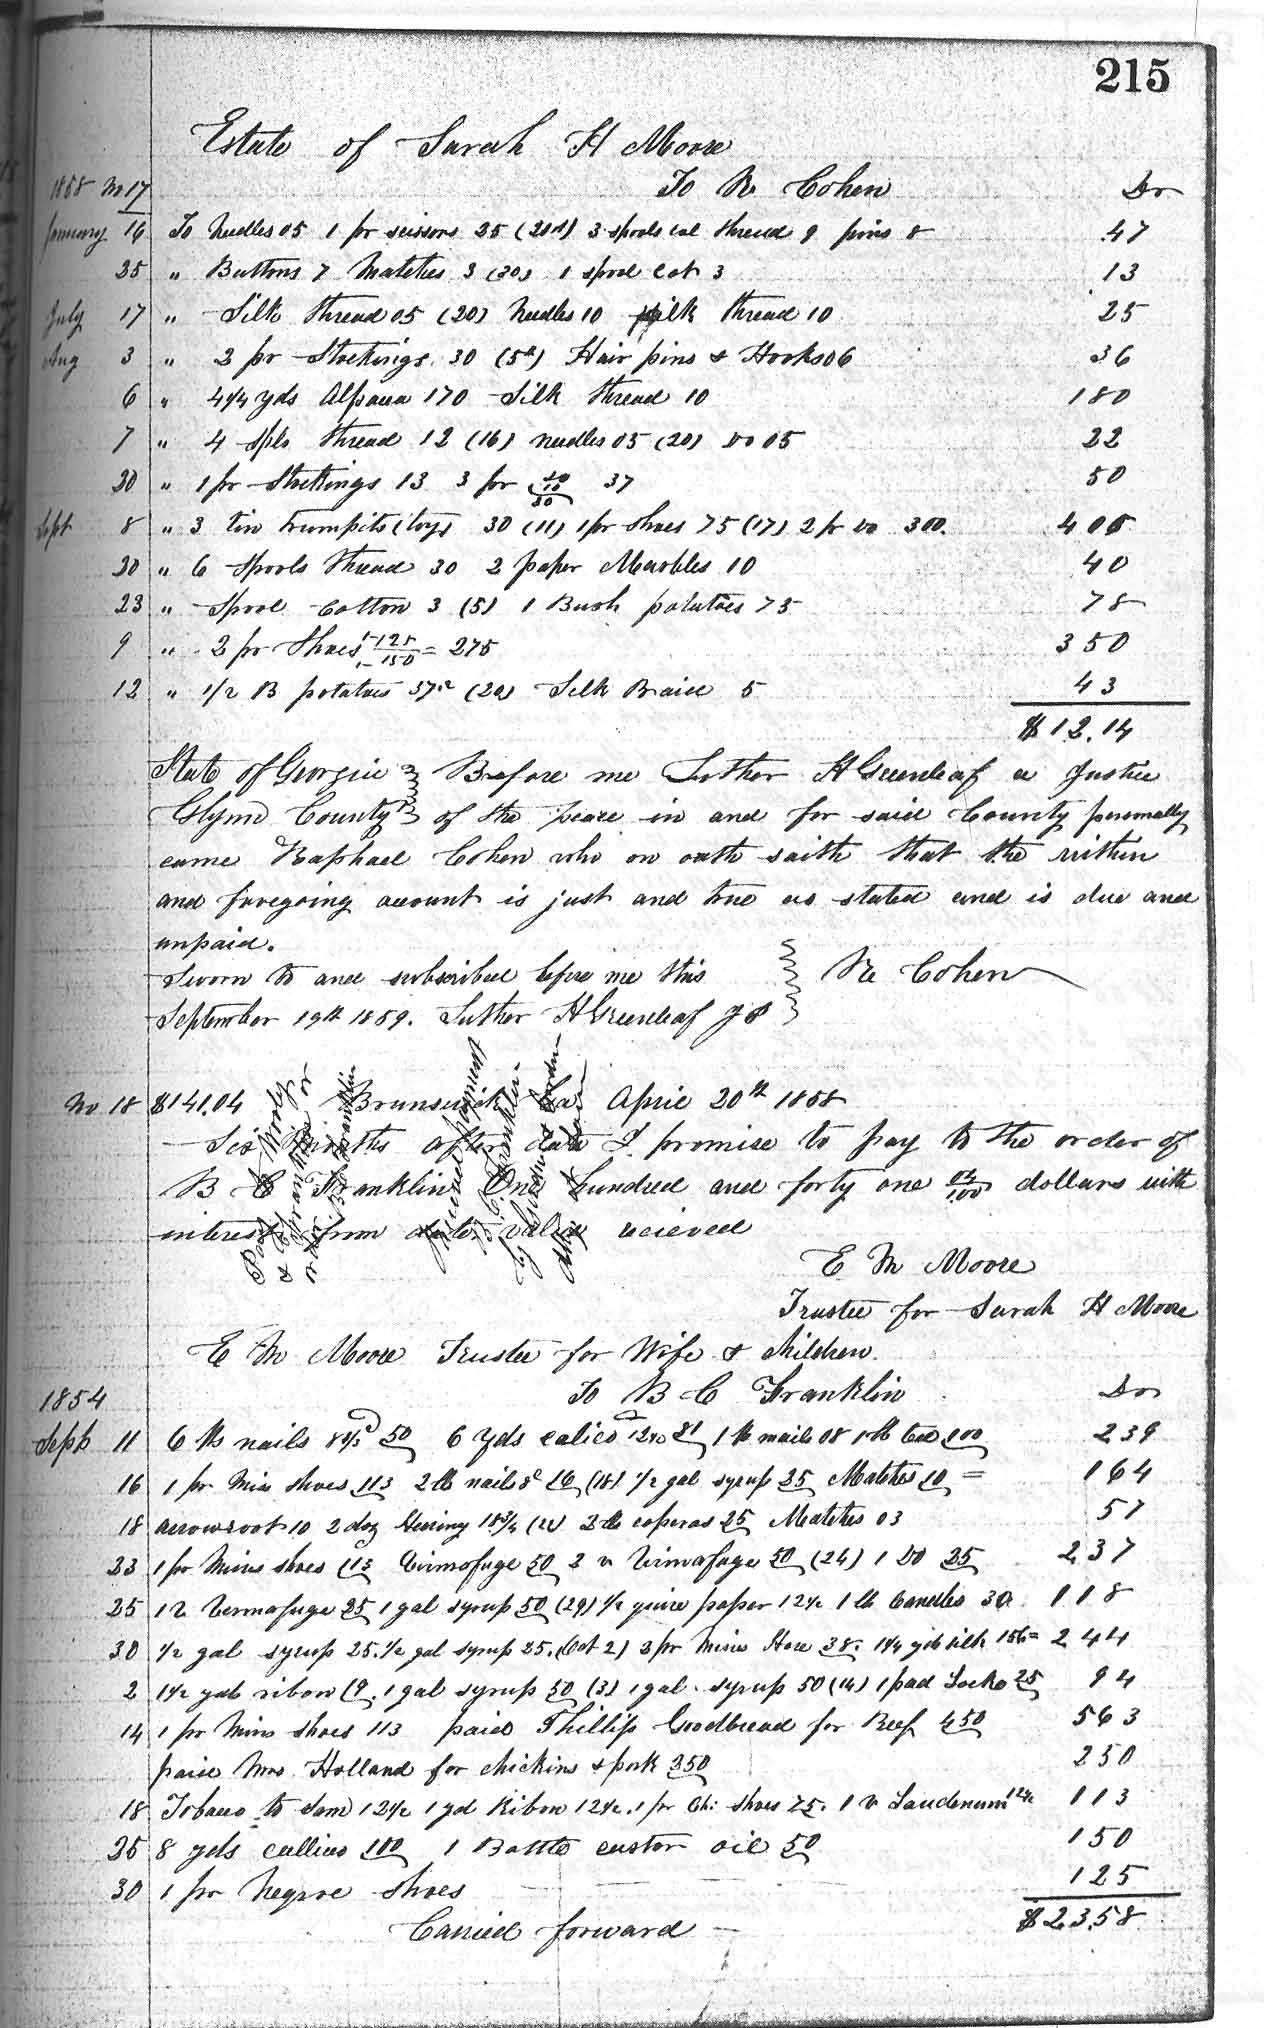 215
Estate of Sarah H Moore
1858 No 17 To R Cohen Dr
January 16 To Needles 05 1 pr scissors 25 3 spools thread 9 pins 8 47
25 " Buttons 7 Matches 3 (30) 1 spool cot 3 13
July 17 " Silk thread 05 (20) Needles 10 silk thread 10 25
Aug 3 " 2 pr Stockings 30 (5th) Hair pins & Hooks 06 36
6 " 4 1/4 yds Alpaca 170 Silk thread 10 180
7 " 4 Spls thread 12 (16) needles 05 (20) do 05 22
20 " 1 pr Stockings 13 3 pr 37 50
Sept 8 " 3 tin trumpits (toys) 30 (11) 1 pr shoes 75 (17) 2 pr do 300. 405
20 " 6 Spools thread 30 2 paper Marbles 10 40
23 " Spool Cotton 3 (5) 1 Bush potatoes 75 78
9 " 2 pr Shoes 125 150 = 275 350
12 " 1/2 B potatoes 37 (20) Silk Braid 5 43
$12.14
State of Georgia Before me Luther H Greenleaf a Justice
Glynn County of the peace in and for said County personally
came Raphael Cohen who on oath saith that the within
and foregoing account is just and true as stated and is due and
unpaid.
Sworn to and subscribed before me this R Cohen
September 19th 1859. Luther H Greenleaf J P
No 18 $141.04 Brunswick Ga April 20th 1858
Six Months after date I promise to pay to the order of
B C Franklin One hundred and forty one 04/100 dollars with
interest from date value recieved
E M Moore
Trustee for Sarah H Moore
E M Moore Trustee for Wife & Children
1854 To B C Franklin Dr
Sept 11 6 lbs nails 50 6 yds calico 1 lb nails 08 1 lb tea 100 239
16 1 pr Miss shoes 113 2 lb nails 16 (18) 1/2 gal syrup 25 Matches 10 = 164
18 arrowroot 10 2 doz Herring 18 3/4 2 lb coperas 25 Matches 03 57
23 1 pr Miss shoes 113 Virmofuge 50 2 v Virmafuge 50 (24) 1 Do 25 237
25 1 v Vermafuge 25 1 gal syrup 50 (29) 1/2 quire paper 12 1/2 1 lb Candles 30 118
30 1/2 gal syrup 25. 1/2 gal syrup 25. (Oct 2) 3 pr Miss Hose 38. 1 1/4 yds silk 156 = 244
2 1 1/2 yds ribon 19. 1 gal syrup 50 (3) 1 gal syrup 50 (14) 1 pad Locks 25 94
14 1 pr Miss shoes 113 paid Phillip Goodbread for Beef 450 563
paid Mrs Holland for chickins & pork 250 250
18 Tobacco to Sam 12 1/2 1 yd Ribon 12 1/2. 1 pr Ch: shoes 75. 1 v Laudenum 12 1/2 113
25 8 yds callico 100 1 Bottle castor oil 50 150
30 1 pr Negroe shoes 125
Carried forward $23.58